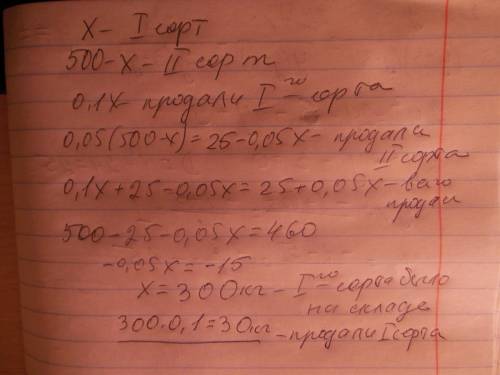 x - I сорт
500-x - II сорт
0,1x - продали I-го сорта
0,05(500-x)=25-0,05x - продали
II сорта
0,1x+25-0,05x=25+0,05x - всего
продали
500-25-0,05x=460
-0,05x=-15
x=300кг - I-го сорта было
на складе
300·0,1=30кг - продали I сорта